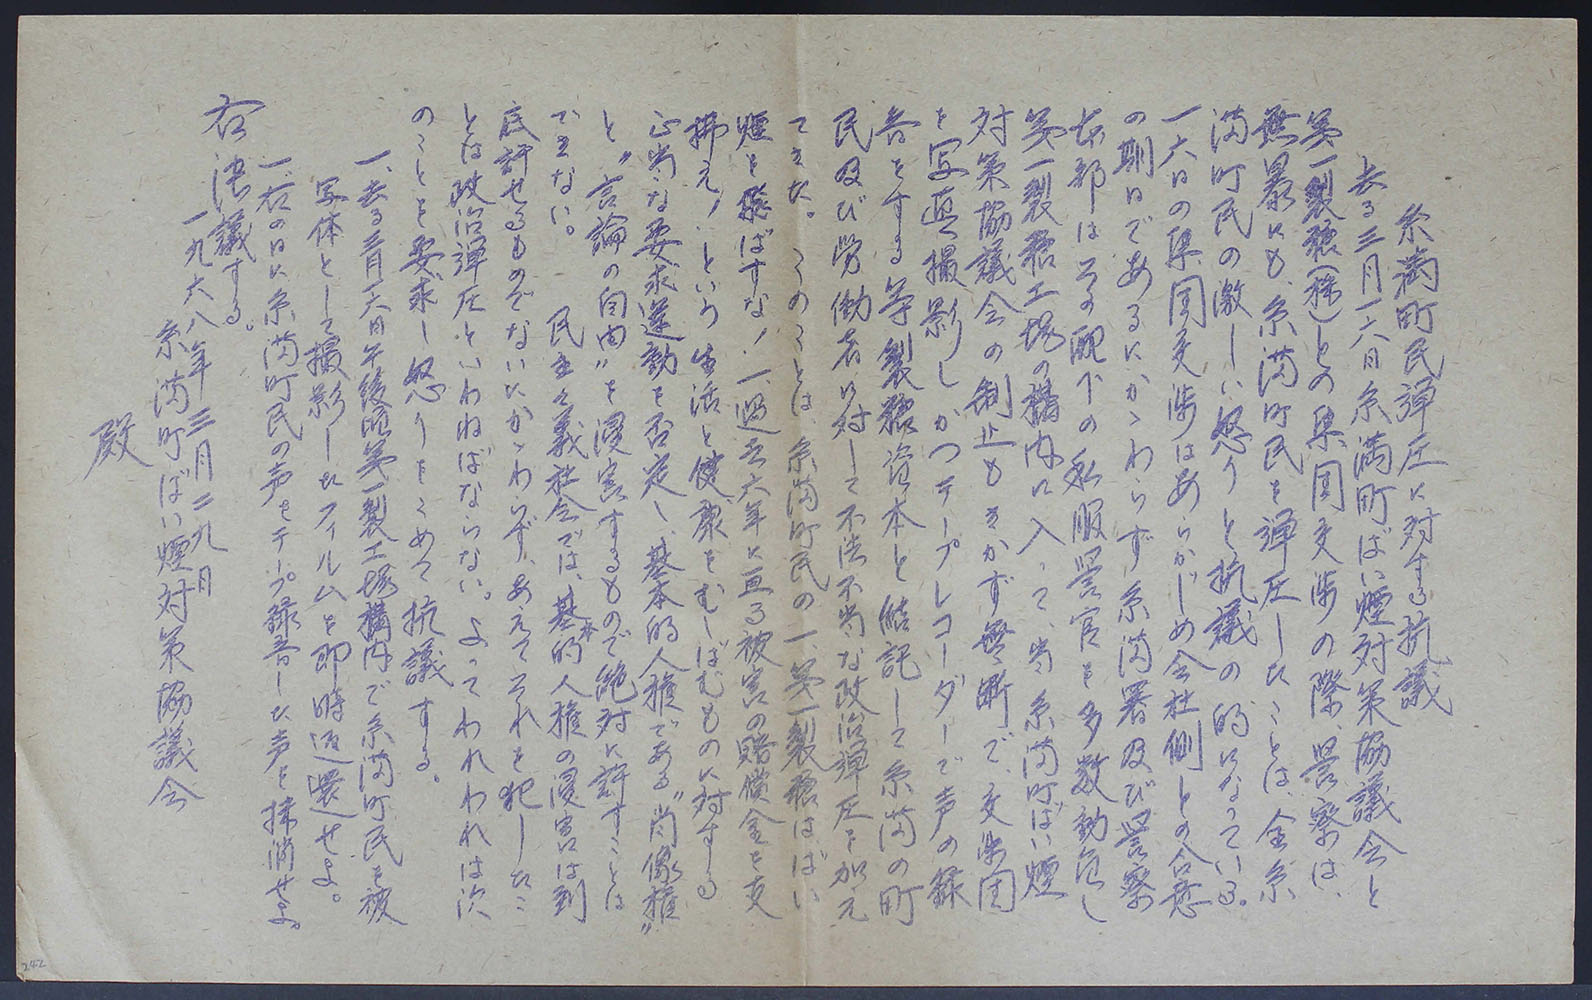 糸満町民弾圧に対する抗議
去る三月一六日糸満町ばい煙対策協議会と
第一製糖(株)との集団交渉の際、警察は、
無暴にも、糸満町民を弾圧したことは、全糸
満町民の激しい怒りと抗議の的になっている。
一六日の集団交渉はあらかじめ会社側との合意
の期日であるにかゝわらず糸満署及び警察
本部はその配下の私服警官を多数動員し
第一製糖工場の構内に入って、当糸満町ばい煙
対策協議会の制止もきかず無断で、交渉団
を写真撮影しかつテープレコーダーで声の録
音をする等製糖資本と結託して糸満の町
民及び労働者に対して不法不当な政治弾圧を加え
てきた。このことは、糸満町民の一、第一製糖はばい
煙を飛ばすな!一、過去六年に亘る被害の賠償金を支
拂え!という生活と健康をむしばむものに対する
正当な要求運動を否定し、基本的人権である"肖像権"
と"言論の自由"を浸害するもので絶対に許すことは
できない。 民主々義社会では、基本的人権の浸害は到
底許せるものでないにかゝわらず、あえてそれを犯したこ
とは政治弾圧といわねばならない。よってわれわれは次
のことを要求し怒りをこめて抗議する。
一、去る三月一六日午後第一製工場構内で糸満町民を被
写体として撮影したフィルムを即時返還せよ。
一、右の日に糸満町民の声をテープ録音した声を抹消せよ。
右決議する。
一九六八年三月二九月
糸満町ばい煙対策協議会
殿
242